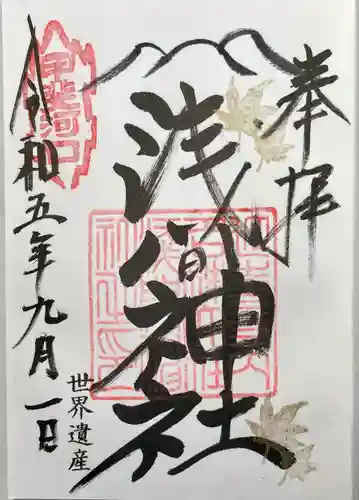 奉拝
浅間神社
世界遺産
令和五年九月一日
甲斐河口